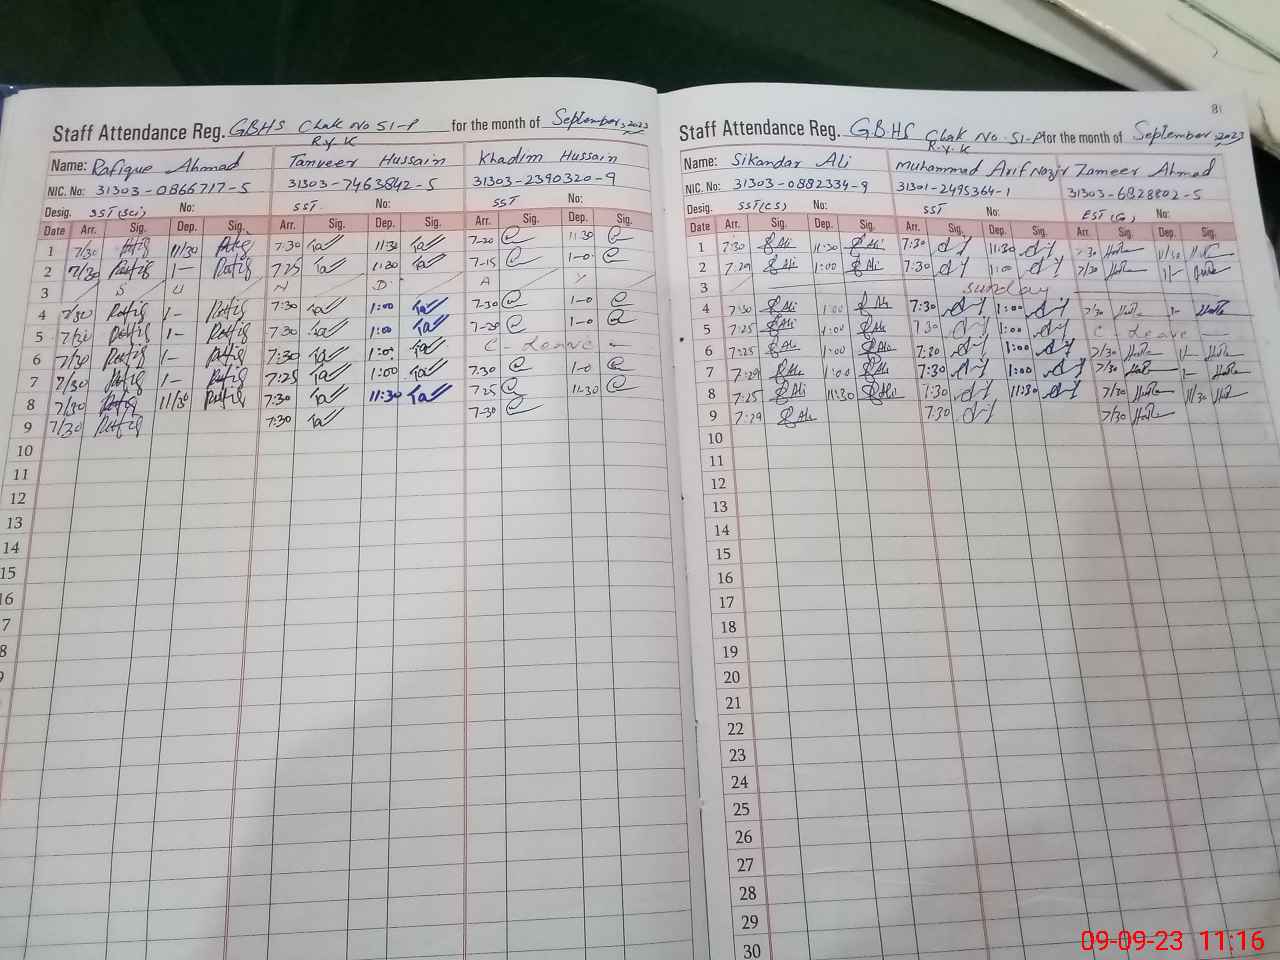 81
Staff Attendance Reg. GBHS Chak No 51-P for the month of September, 2023
R.Y.K
Name: Rafique Ahmad Tanveer Hussain Khadim Hussain
NIC. No: 31303-0866717-5 31303-7463842-5 31303-2390320-9
Desig. SST(Sci) No: SST No: SST No:
Date Arr. Sig. Dep. Sig. Arr. Sig. Dep. Sig. Arr. Sig. Dep. Sig.
1 7/30 11/30 7:30 11:30 7-20 11-30
2 7/30 1- 7:25 11:30 7-15 1-0
3 S U N D A Y
4 7/30 1- 7:30 1:00 7-30 1-0
5 7/30 1- 7:30 1:00 7-20 1-0
6 7/30 1- 7:30 1:00 C - Leave -
7 7/30 1- 7:25 1:00 7.30 1-0
8 7/30 11/30 7:30 11:30 7.25 11-30
9 7/30 7:30 7-30
10
11
12
13
14
15
16
7
8
9
Staff Attendance Reg. GBHS Chak No. 51-P for the month of September, 2023
R.Y.K
Name: Sikandar Ali Muhammad Arif Nazir Zameer Ahmad
NIC. No: 31303-0882334-9 31301-2495364-1 31303-6828802-5
Desig. SST(CS) No: SST No: EST(G) No:
Date Arr. Sig. Dep. Sig. Arr. Sig. Dep. Sig. Arr. Sig. Dep. Sig.
1 7:30 11:30 7:30 11:30 7/30 11/30
2 7:29 1:00 7:30 1:00 7/30 1/-
3 Sunday
4 7:30 1:00 7:30 1:00 7/30
5 7:25 1:00 7:30 1:00 C - Leave
6 7:25 1:00 7:30 1:00 7/30
7 7:29 1:00 7:30 1:00 7/30
8 7:25 11:30 7:30 11:30 7/30 11/30
9 7:29 7:30 7/30
10
11
12
13
14
15
16
17
18
19
20
21
22
23
24
25
26
27
28
29
30
09-09-23 11:16